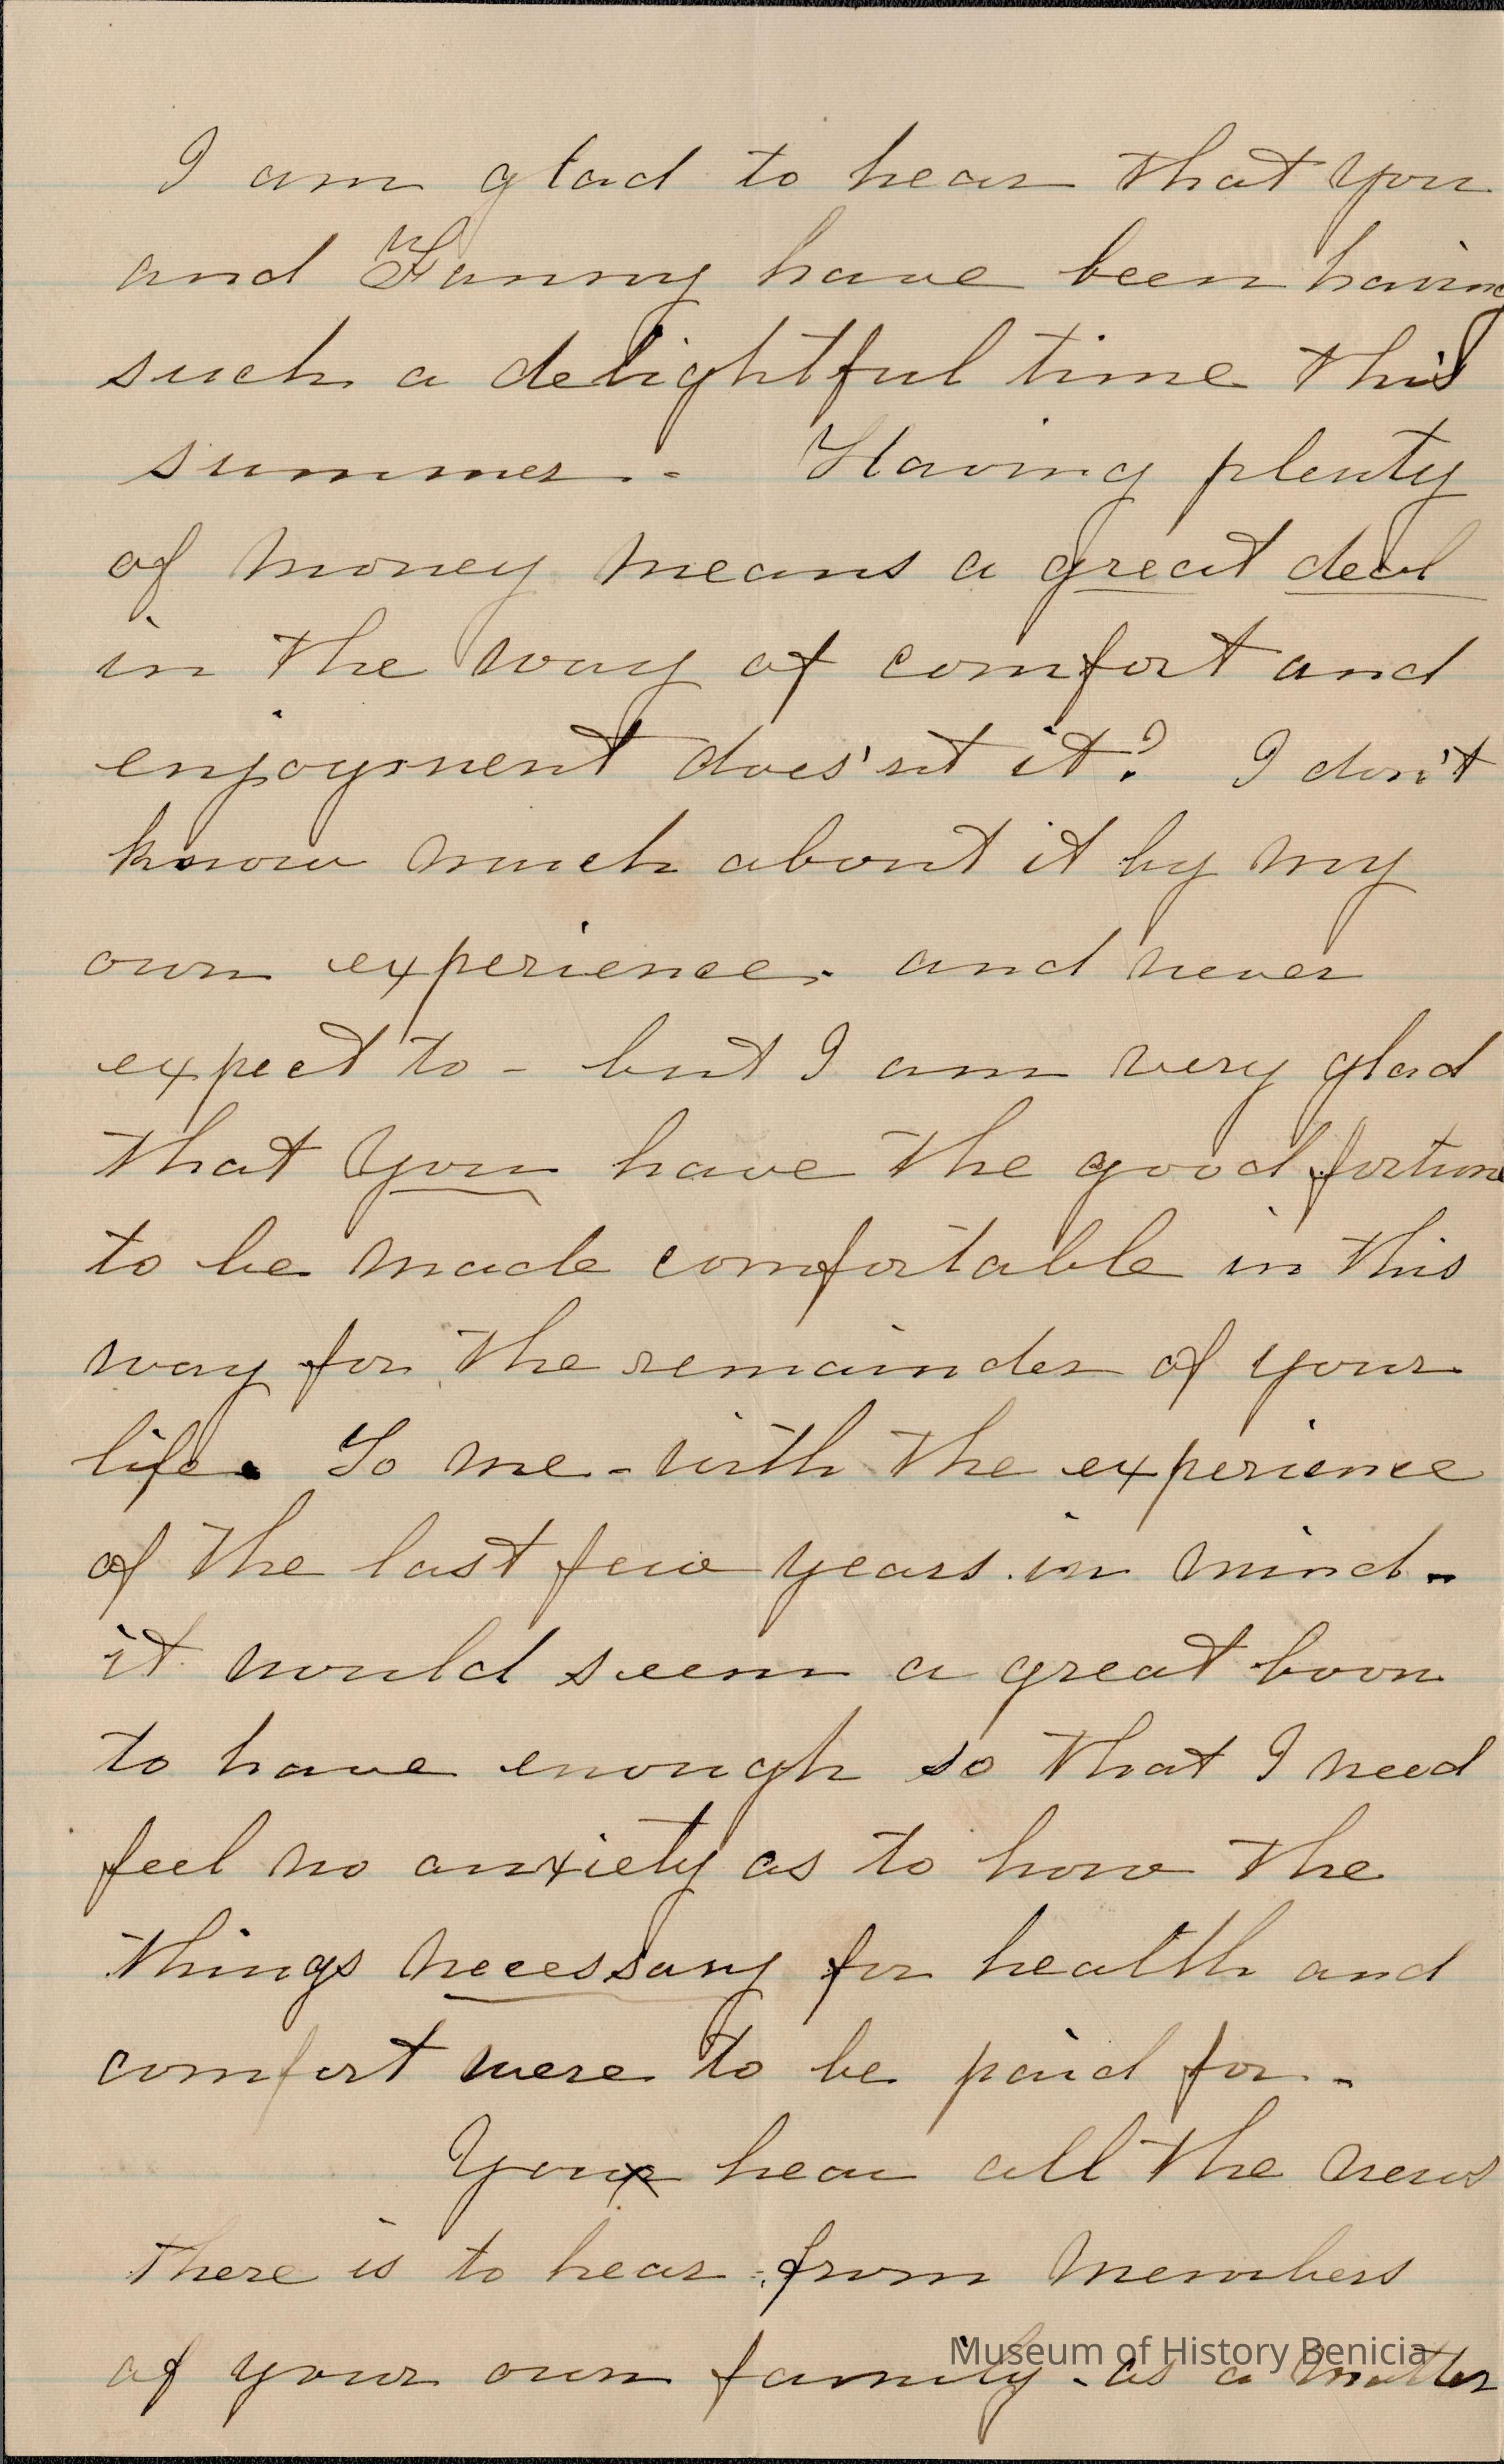 I am glad to hear that you
and Fanny have been having
such a delightful time this
summer. - Having plenty
of money means a great deal
in the way of comfort and
enjoyment does'nt it? I don't
know much about it by my
own experience. and never
expect to - but I am very glad
that you have the good fortune
to be made comfortable in this
way for the remainder of your
life. To me - with the experience
of the last few years in mind -
it would seem a great boon
to have enough so that I need
feel no anxiety as to how the
things necessary for health and
comfort were to be paid for. -
You hear all the news
there is to hear from members
of your own family - as a matter
Museum of History Benicia